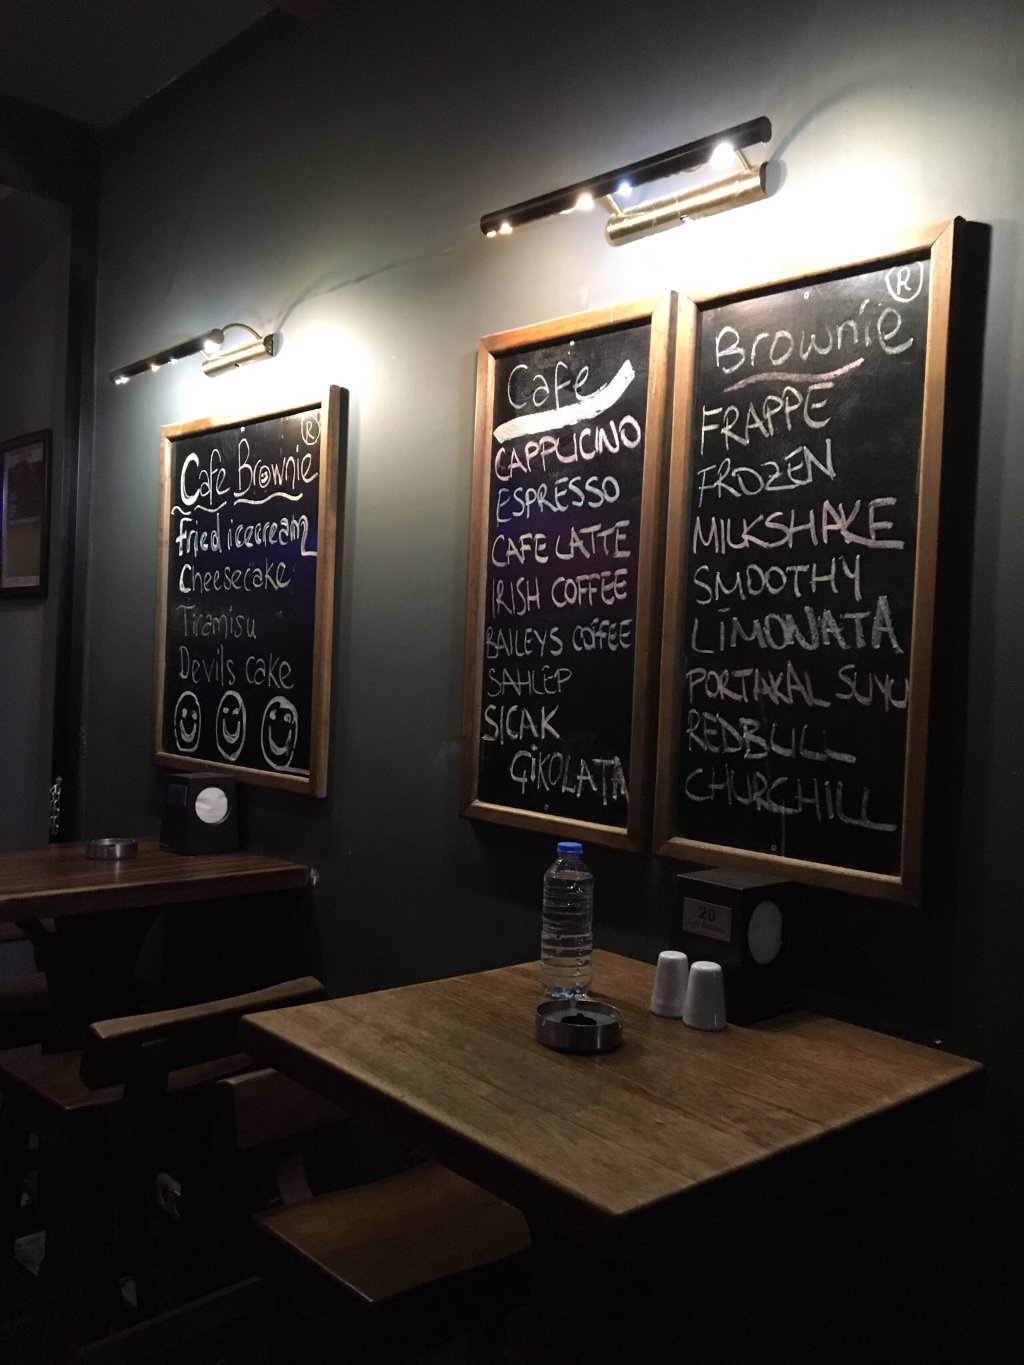 ®
Cafe Brownie
Fried icecream
Cheesecake
Tiramisu
Devils cake
Cafe
CAPPLICINO
ESPRESSO
CAFE LATTE
IRISH COFFEE
BAILEYS COFFEE
SAHLEP
SICAK
ÇİKOLATA
®
Brownie
FRAPPE
FROZEN
MILKSHAKE
SMOOTHY
LİMONATA
PORTAKAL SUYU
REDBULL
CHURCHILL
20